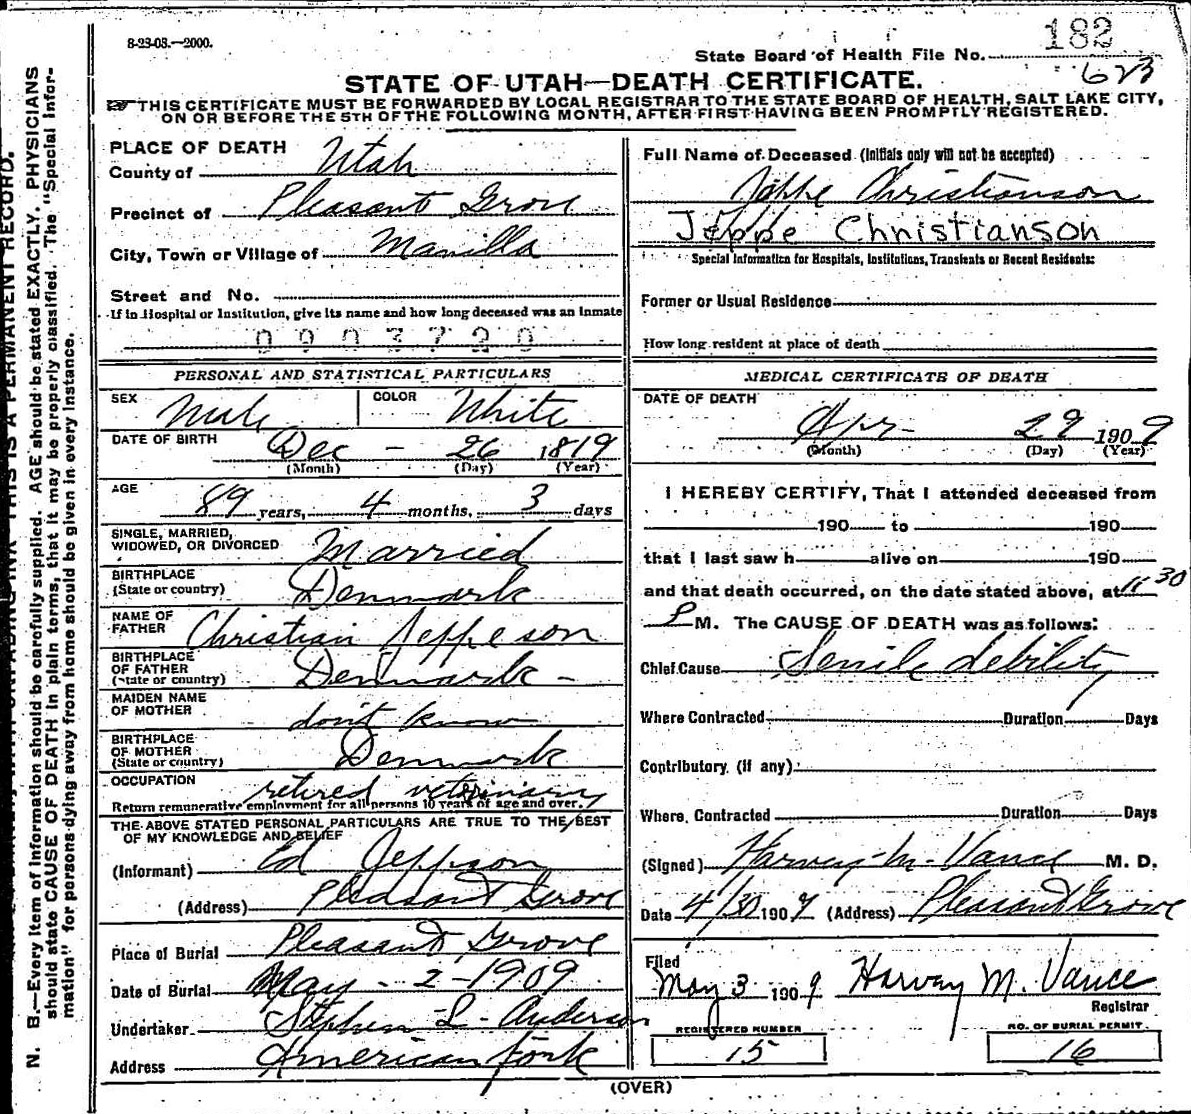 8-23-08.—2000.
182
State Board of Health File No.
623
STATE OF UTAH—DEATH CERTIFICATE.
THIS CERTIFICATE MUST BE FORWARDED BY LOCAL REGISTRAR TO THE STATE BOARD OF HEALTH, SALT LAKE CITY,
ON OR BEFORE THE 5TH OF THE FOLLOWING MONTH, AFTER FIRST HAVING BEEN PROMPTLY REGISTERED.
PLACE OF DEATH
County of Utah
Precinct of Pleasant Grove
City, Town or Village of Manilla
Street and No.
If in Hospital or Institution, give its name and how long deceased was an inmate
0903720
PERSONAL AND STATISTICAL PARTICULARS
SEX Male COLOR White
DATE OF BIRTH Dec - 26 1819
(Month) (Day) (Year)
AGE 89 years, 4 months, 3 days
SINGLE, MARRIED,
WIDOWED, OR DIVORCED Married
BIRTHPLACE
(State or country) Denmark
NAME OF
FATHER Christian Jeppeson
BIRTHPLACE
OF FATHER
(State or country) Denmark -
MAIDEN NAME
OF MOTHER don't know
BIRTHPLACE
OF MOTHER
(State or country) Denmark
OCCUPATION retired veterinary
Return remunerative employment for all persons 10 years of age and over.
THE ABOVE STATED PERSONAL PARTICULARS ARE TRUE TO THE BEST
OF MY KNOWLEDGE AND BELIEF
(Informant) Ed Jeppson
(Address) Pleasant Grove
Place of Burial Pleasant Grove
Date of Burial May - 2 - 1909
Undertaker Stephen L. Anderson
Address American Fork
Full Name of Deceased (Initials only will not be accepted)
Jeppe Christianson
Jeppe Christianson
Special Information for Hospitals, Institutions, Transients or Recent Residents:
Former or Usual Residence
How long resident at place of death
MEDICAL CERTIFICATE OF DEATH
DATE OF DEATH
Apr- 29 1909
(Month) (Day) (Year)
I HEREBY CERTIFY, That I attended deceased from
190 to 190
that I last saw h alive on 190
and that death occurred, on the date stated above, at 11 30
P M. The CAUSE OF DEATH was as follows:
Chief Cause Senile debility
Where Contracted Duration Days
Contributory (if any)
Where Contracted Duration Days
(Signed) Harvey M. Vance M. D.
Date 4/30 1909 (Address) Pleasant Grove
Filed
May 3 1909 Harvey M. Vance
Registrar
REGISTERED NUMBER
15
NO. OF BURIAL PERMIT
16
(OVER)
N. B.—Every item of information should be carefully supplied. AGE should be stated EXACTLY. PHYSICIANS
should state CAUSE OF DEATH in plain terms, that it may be properly classified. The "Special Infor-
mation" for persons dying away from home should be given in every instance.
THIS IS A PERMANENT RECORD.